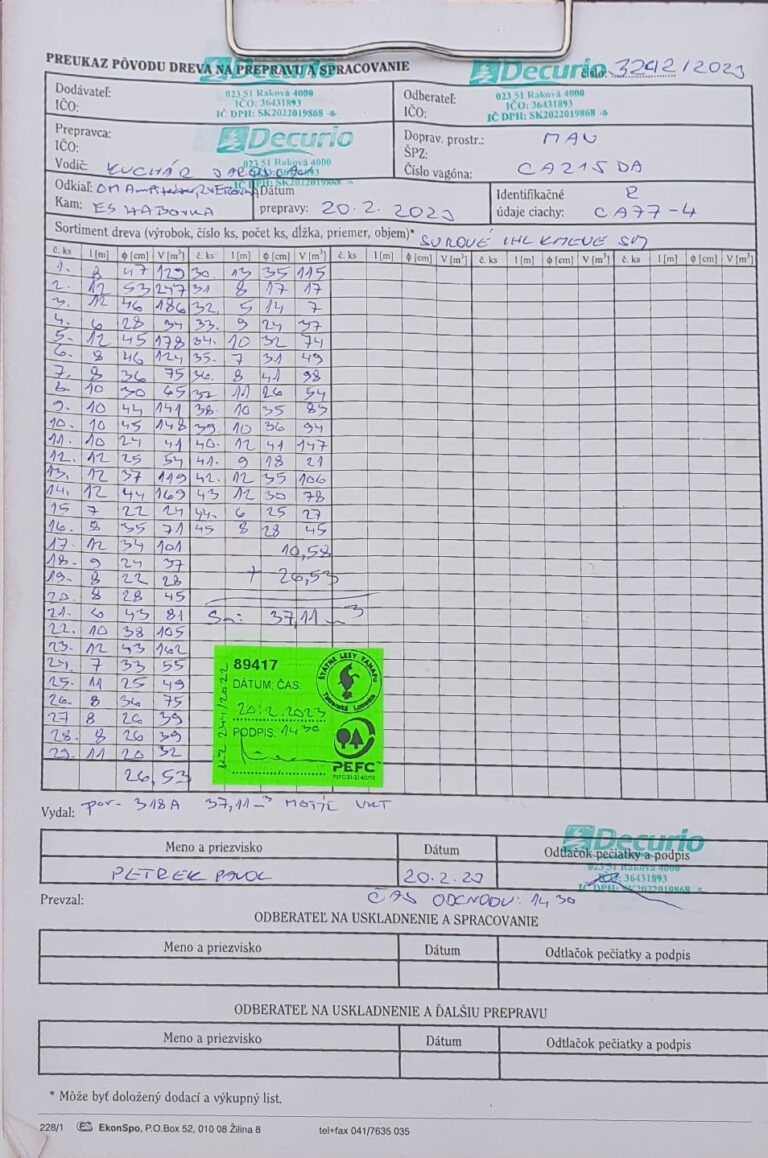 PREUKAZ PÔVODU DREVA NA PREPRAVU A SPRACOVANIE
Decurio Decurio číslo: 3292/2023
Dodávateľ: 023 51 Raková 4000 Odberateľ: 023 51 Raková 4000
IČO: IČO: 36431893 IČO: IČO: 36431893
IČ DPH: SK2022019868 IČ DPH: SK2022019868
Prepravca: Decurio Doprav. prostr.: MAN
IČO: ŠPZ:
Vodič: KUCHÁR 023 51 Raková 4000 Číslo vagóna: CA215DA
Odkiaľ: Dátum Identifikačné R
Kam: ES HABOVKA prepravy: 20.2.2023 údaje ciachy: CA77-4
Sortiment dreva (výrobok, číslo ks, počet ks, dĺžka, priemer, objem)* SUROVÉ IHL KMENE
č. ks l [m] ϕ [cm] V [m³] č. ks l [m] ϕ [cm] V [m³] č. ks l [m] ϕ [cm] V [m³] č. ks l [m] ϕ [cm] V [m³] č. ks l [m] ϕ [cm] V [m³]
1. 8 47 129 30 13 35 115
2. 12 53 247 31 8 17 17
3. 12 46 186 32. 5 14 7
4. 6 28 34 33. 9 24 37
5. 12 45 178 34. 10 32 74
6. 8 46 124 35. 7 31 49
7. 8 36 75 36. 8 41 98
8. 10 30 65 37 11 26 54
9. 10 44 141 38. 10 35 89
10. 10 45 148 39. 10 36 94
11. 10 24 41 40. 12 41 147
12. 12 25 54 41. 9 18 21
13. 12 37 119 42. 12 35 106
14. 12 44 169 43 12 30 78
15 7 22 24 44. 6 25 27
16. 8 35 71 45 8 28 45
17. 12 34 101 10,58
18. 9 24 37
19. 8 22 28 + 26,53
20. 8 28 45
21. 6 43 81 37,11 m³
22. 10 38 105
23. 12 43 162
24. 7 33 55
25. 11 25 49
26. 8 36 75
27 8 26 39
28. 8 26 39
29. 11 20 32
26,53
89417
DÁTUM: ČAS:
20.2.2023
PODPIS: 1430
ŠTÁTNE LESY TANAPU
Tatranská Lomnica
PEFC
Vydal: por- 318A 37,11 m³
Meno a priezvisko Dátum Odtlačok pečiatky a podpis
Decurio
023 51 Raková 4000
IČO: 36431893
IČ DPH: SK2022019868
PETREK PAVOL 20.2.23
Prevzal: ČAS ODCHODU: 1430
ODBERATEĽ NA USKLADNENIE A SPRACOVANIE
Meno a priezvisko Dátum Odtlačok pečiatky a podpis
ODBERATEĽ NA USKLADNENIE A ĎALŠIU PREPRAVU
Meno a priezvisko Dátum Odtlačok pečiatky a podpis
* Môže byť doložený dodací a výkupný list.
228/1 ES EkonSpo, P.O.Box 52, 010 08 Žilina 8 tel+fax 041/7635 035